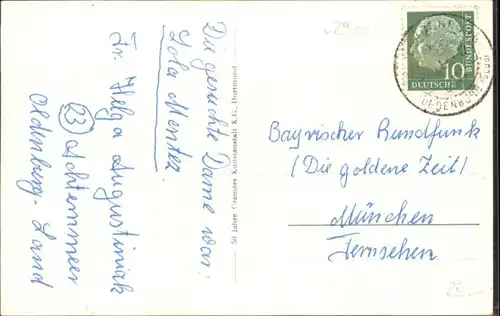 Die gesuchte Dame war:
Lola Montez.
Fr. Helga Augustiniak
(23) Achtermeer
Oldenberg. Land
50 Jahre Cramers Kunstanstalt K.G., Dortmund
DEUTSCHE BUNDESPOST
10
OLDENBURG
Bayrischer Rundfunk
(Die goldene Zeit)
München
Fernsehen